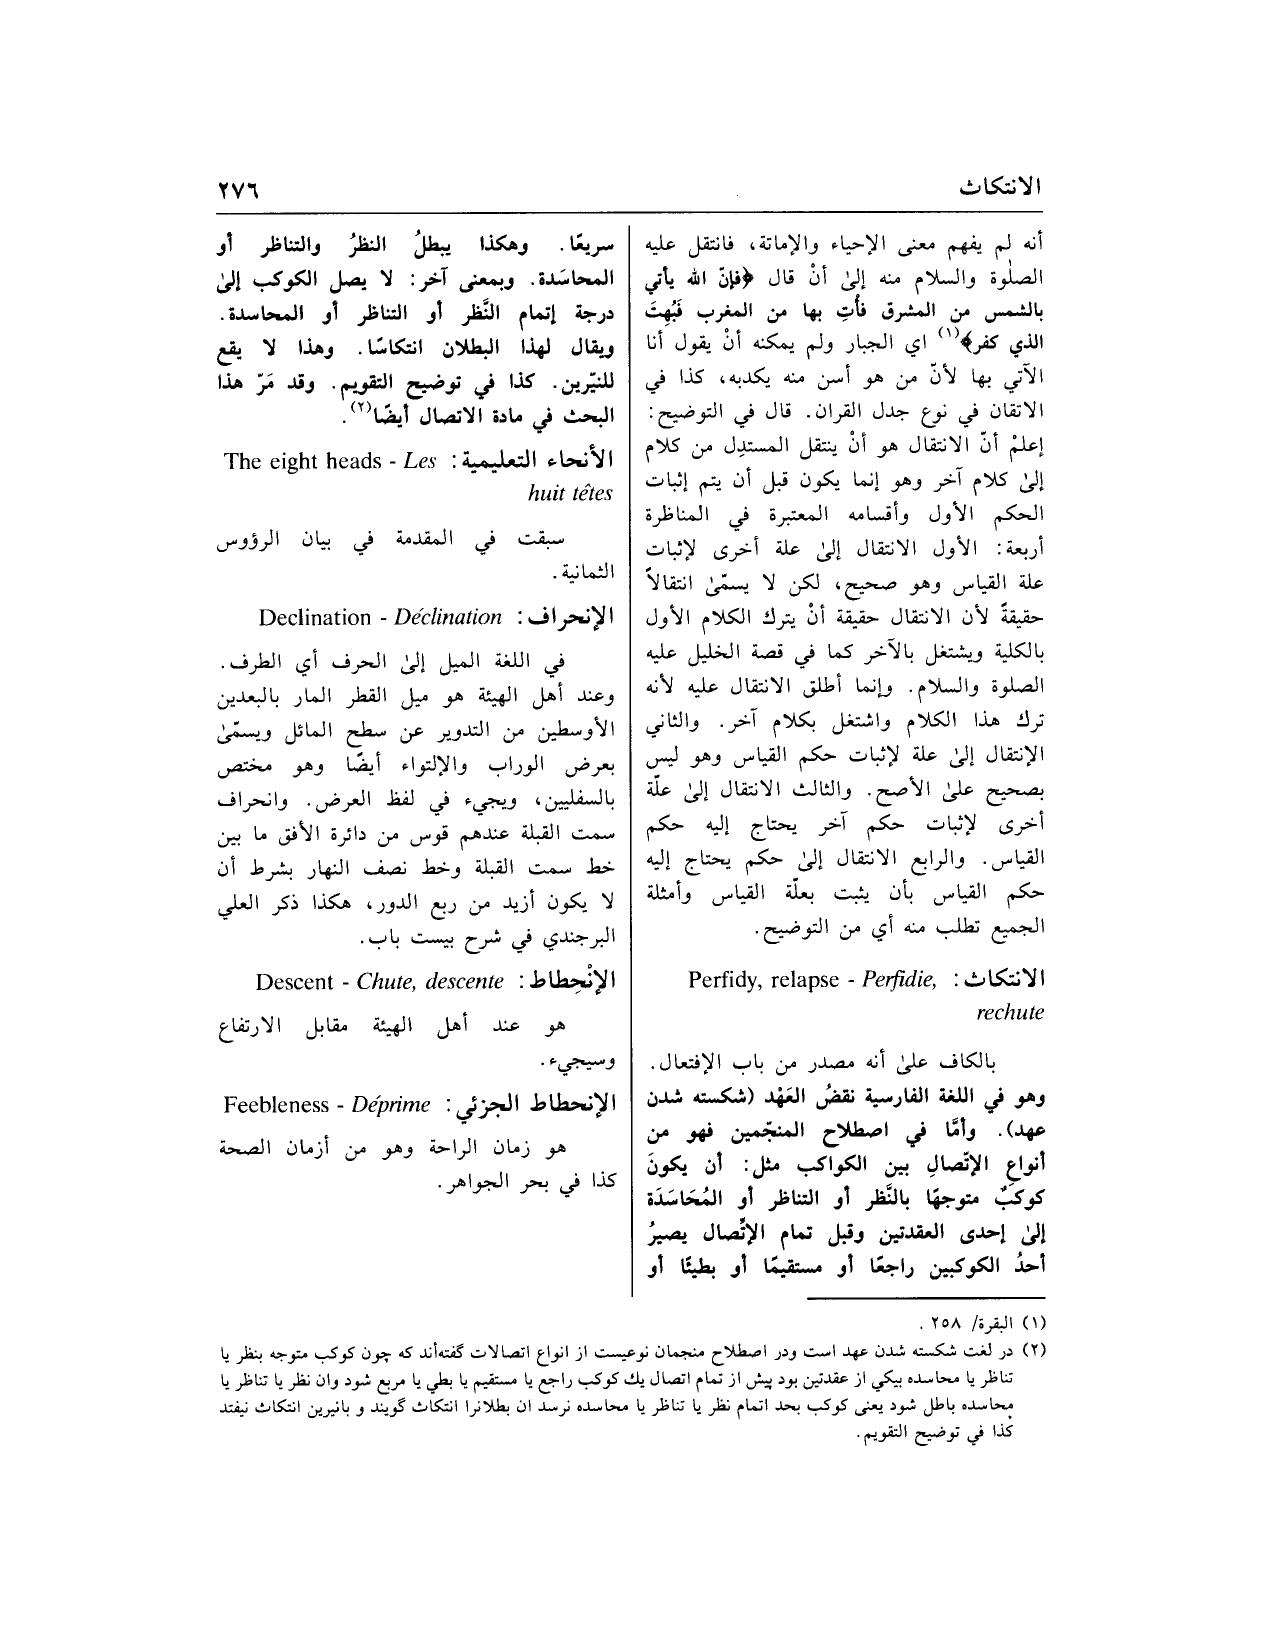 الانتكاث
٢٧٦
أنه لم يفهم معنى الإحياء والإماتة، فانتقل عليه
الصلٰوة والسلام منه إلىٰ أنْ قال ﴿فإنّ الله يأتي
بالشمس من المشرق فأتِ بها من المغرب فَبُهِتَ
الذي كفر﴾(١) اي الجبار ولم يمكنه أنْ يقول أنا
الآتي بها لأنّ من هو أسن منه يكذبه، كذا في
الاتقان في نوع جدل القران. قال في التوضيح:
إعلمْ أنّ الانتقال هو أنْ ينتقل المستدِل من كلام
إلىٰ كلام آخر وهو إنما يكون قبل أن يتم إثبات
الحكم الأول وأقسامه المعتبرة في المناظرة
أربعة: الأول الانتقال إلىٰ علة أخرى لإثبات
علة القياس وهو صحيح، لكن لا يسمّىٰ انتقالاً
حقيقةً لأن الانتقال حقيقة أنْ يترك الكلام الأول
بالكلية ويشتغل بالآخر كما في قصة الخليل عليه
الصلوة والسلام. وإنما أطلق الانتقال عليه لأنه
ترك هذا الكلام واشتغل بكلام آخر. والثاني
الإنتقال إلىٰ علة لإثبات حكم القياس وهو ليس
بصحيح علىٰ الأصح. والثالث الانتقال إلىٰ علّة
أخرى لإثبات حكم آخر يحتاج إليه حكم
القياس. والرابع الانتقال إلىٰ حكم يحتاج إليه
حكم القياس بأن يثبت بعلّة القياس وأمثلة
الجميع تطلب منه أي من التوضيح.
الانتكاث: Perfidy, relapse - Perfidie,
rechute
بالكاف علىٰ أنه مصدر من باب الإفتعال.
وهو في اللغة الفارسية نقضُ العَهْد (شكسته شدن
عهد). وأمَّا في اصطلاح المنجّمين فهو من
أنواعِ الإتّصالِ بين الكواكب مثل: أن يكونَ
كوكبٌ متوجهًا بالنَّظر أو التناظر أو المُحَاسَدَة
إلىٰ إحدى العقدتين وقبل تمام الإتِّصال يصيرُ
أحدُ الكوكبين راجعًا أو مستقيمًا أو بطيئًا أو
سريعًا. وهكذا يبطلُ النظرُ والتناظر أو
المحاسَدة. وبمعنى آخر: لا يصل الكوكب إلىٰ
درجة إتمام النَّظر أو التناظر أو المحاسدة.
ويقال لهذا البطلان انتكاسًا. وهذا لا يقع
للنيّرين. كذا في توضيح التقويم. وقد مَرّ هذا
البحث في مادة الاتصال أيضًا(٢).
الأنحاء التعليمية: The eight heads - Les
huit têtes
سبقت في المقدمة في بيان الرؤوس
الثمانية.
الإنحراف: Declination - Déclination
في اللغة الميل إلىٰ الحرف أي الطرف.
وعند أهل الهيئة هو ميل القطر المار بالبعدين
الأوسطين من التدوير عن سطح المائل ويسمّىٰ
بعرض الوراب والإلتواء أيضًا وهو مختص
بالسفليين، ويجيء في لفظ العرض. وانحراف
سمت القبلة عندهم قوس من دائرة الأفق ما بين
خط سمت القبلة وخط نصف النهار بشرط أن
لا يكون أزيد من ربع الدور، هكذا ذكر العلي
البرجندي في شرح بيست باب.
الإنْحِطاط: Descent - Chute, descente
هو عند أهل الهيئة مقابل الارتفاع
وسيجيء.
الإنحطاط الجزئي: Feebleness - Déprime
هو زمان الراحة وهو من أزمان الصحة
كذا في بحر الجواهر.
(١) البقرة/ ٢٥٨ .
(٢) در لغت شكسته شدن عهد است ودر اصطلاح منجمان نوعيست از انواع اتصالات گفته‌أند كه چون كوكب متوجه بنظر يا
تناظر يا محاسده بيكي از عقدتين بود پيش از تمام اتصال يك كوكب راجع يا مستقيم يا بطي يا مربع شود وان نظر يا تناظر يا
محاسده باطل شود يعنى كوكب بحد اتمام نظر يا تناظر يا محاسده نرسد ان بطلانرا انتكاث گويند و بانيرين انتكاث نيفتد
كذا في توضيح التقويم.